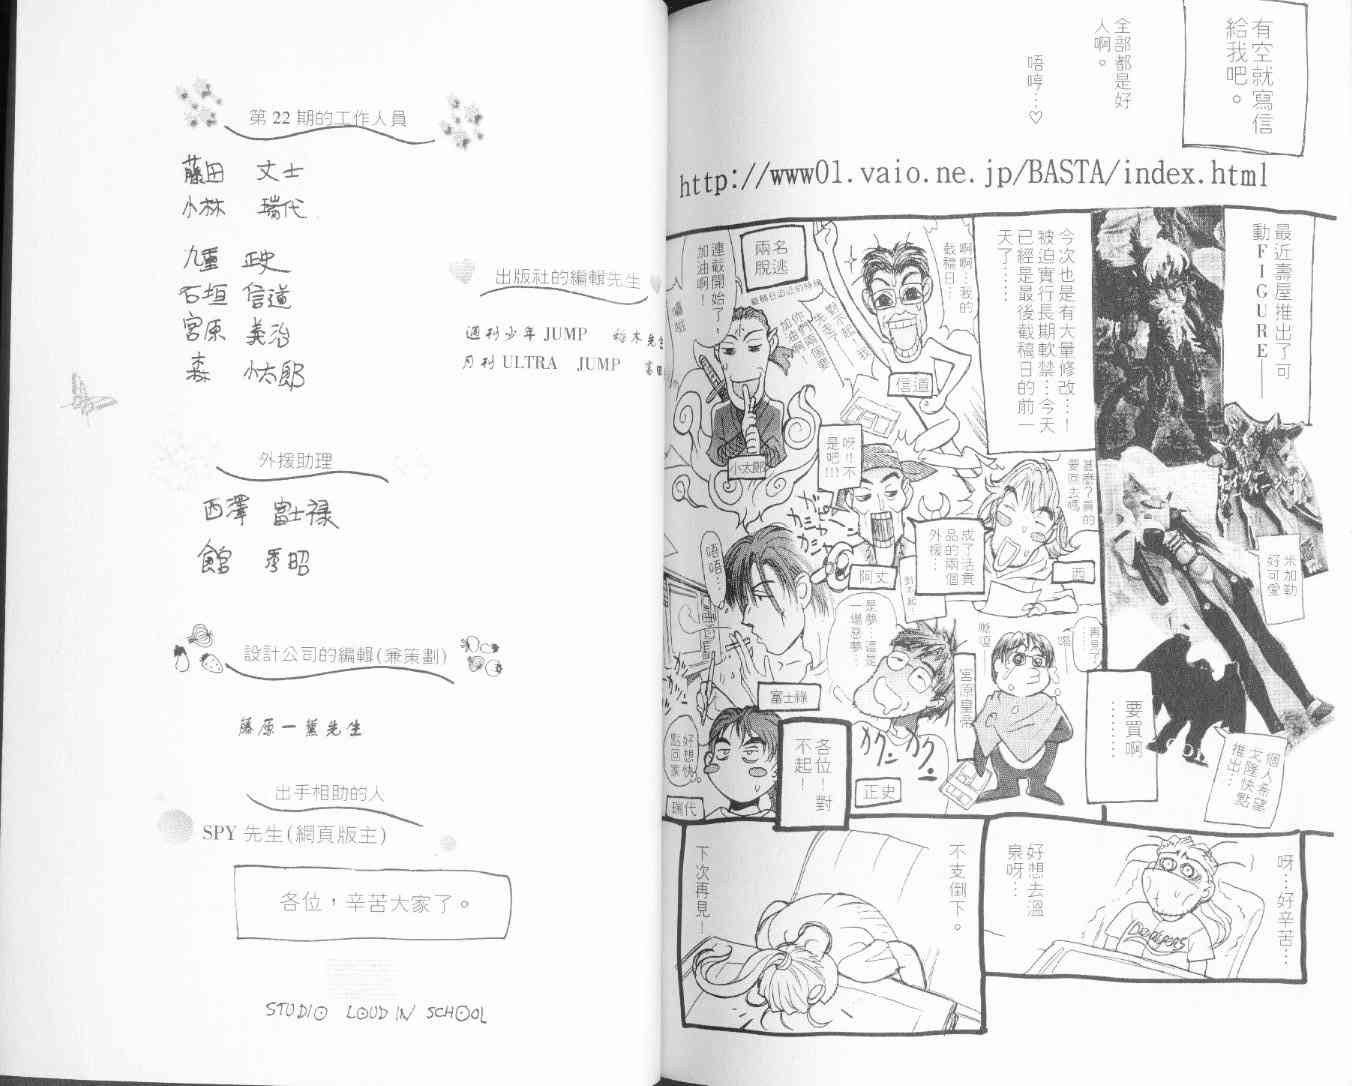 有空就寫信
給我吧。
全部都是好
人啊。
唔哼…♡
http://www01.vaio.ne.jp/BASTA/index.html
最近壽屋推出了可
動FIGURE——
米加勒
好可愛
個人希望
戈隆快點
推出…
要買啊
………
今次也是有大量修改…！
被迫實行長期軟禁…今天
已經是最後截稿日的前一
天了……
啊啊…我的
截稿日…
信道
兩名
脫逃
連載開始了，
加油啊！
對不起！我
先走了——
你們兩個要
加油啊！
小太郎
呀!!不
是吧!!!
阿丈
甚麼？真的
要回去嗎
西
成了活貴
品的兩個
外援…
對不起
唔唔…
富士祿
是夢…這是
一場惡夢…
カクン カクン
正史
宮原皇帝
再見了
……
嗚嗚
好想快
點回家
瑞代
各位！對
不起！
呀…好辛苦…
好想去溫
泉呀…
DRAGONS
不支倒下。
下次再見！
第22期的工作人員
藤田 丈士
小林 瑞代
九重 正史
石垣 信道
宮原 義治
森 小太郎
出版社的編輯先生
週刊少年JUMP 裕木先生
月刊ULTRA JUMP
外援助理
西澤 富士祿
館 秀昭
設計公司的編輯(兼策劃)
藤原一薰先生
出手相助的人
SPY先生(網頁版主)
各位，辛苦大家了。
STUDIO LOUD IN SCHOOL